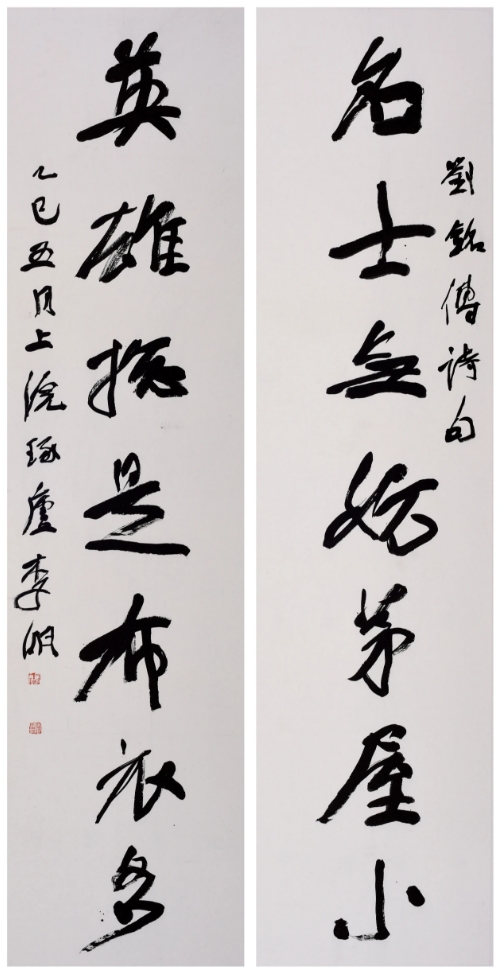 劉銘傳詩句
名士無妨茅屋小
英雄揔是布衣多
乙巳五月上浣琢廬李